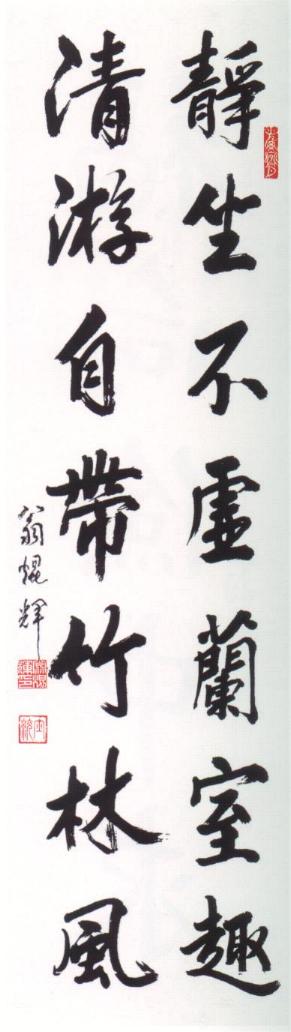 靜坐不虛蘭室趣
清游自帶竹林風
翁焜輝